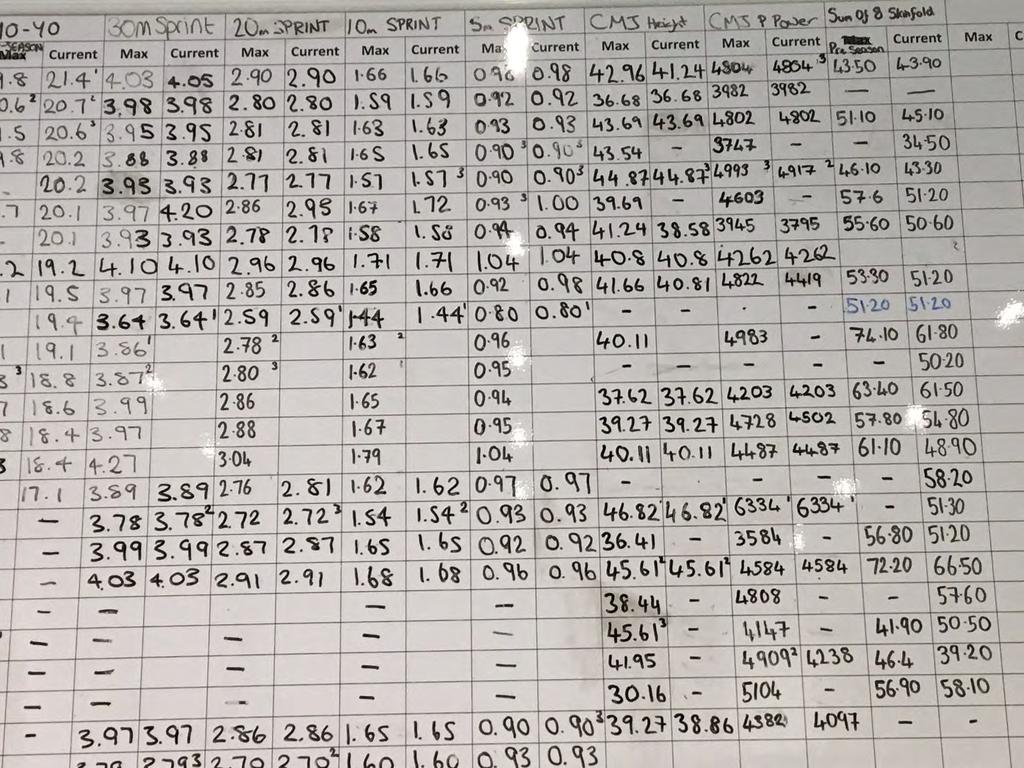 10-40 30m Sprint 20m SPRINT 10m SPRINT 5m SPRINT CMJ Height CMJ P Power Sum of 8 Skinfold
SEASON Max Current Max Current Max Current Max Current Max Current Max Current Max Current Pre Season Current Max C
.8 21.4¹ 4.03 4.05 2.90 2.90 1.66 1.66 0.98 42.96 41.24 4804 4804³ 43.50 43.90
0.6² 20.7² 3.98 3.98 2.80 2.80 1.59 1.59 0.92 0.92 36.68 36.68 3982 3982 — —
.5 20.6³ 3.95 3.95 2.81 2.81 1.63 1.63 0.93 0.93 43.69 43.69 4802 4802 51.10 45.10
.8 20.2 3.88 3.88 2.81 2.81 1.65 1.65 0.90³ 0.90³ 43.54 - 3747 - — 34.50
- 20.2 3.93 3.93 2.77 2.77 1.57 1.57³ 0.90 0.90³ 44.87 44.87³ 4993³ 4917² 46.10 43.30
.7 20.1 3.97 4.20 2.86 2.95 1.67 1.72 0.93³ 1.00 39.69 - 4603 - 57.6 51.20
- 20.1 3.93 3.93 2.78 2.78 1.58 1.58 0.94 0.94 41.24 38.58 3945 3795 55.60 50.60
.2 19.2 4.10 4.10 2.96 2.96 1.71 1.71 1.04 1.04 40.8 40.8 4262 4262
1 19.5 3.97 3.97 2.85 2.86 1.65 1.66 0.92 0.98 41.66 40.81 4822 4419 53.30 51.20
19.4 3.64 3.64¹ 2.59 2.59¹ 1.44 1.44¹ 0.80 0.80¹ - - - - 51.20 51.20
1 19.1 3.86¹ 2.78² 1.63² 0.96 40.11 4983 - 74.10 61.80
3³ 18.8 3.87² 2.80³ 1.62 0.95 - - - - - 50.20
7 18.6 3.99 2.86 1.65 0.94 37.62 37.62 4203 4203 63.40 61.50
8 18.4 3.97 2.88 1.67 0.95 39.27 39.27 4728 4502 57.80 54.80
3 18.4 4.27 3.04 1.79 1.04 40.11 40.11 4487 4487 61.10 48.90
17.1 3.89 3.89 2.76 2.81 1.62 1.62 0.97 0.97 - - - - - 58.20
- 3.78 3.78² 2.72 2.72³ 1.54 1.54² 0.93 0.93 46.82¹ 46.82¹ 6334¹ 6334¹ - 51.30
- 3.99 3.99 2.87 2.87 1.65 1.65 0.92 0.92 36.41 - 3584 - 56.80 51.20
- 4.03 4.03 2.91 2.91 1.68 1.68 0.96 0.96 45.61² 45.61² 4584 4584 72.20 66.50
- - - - 38.44 - 4808 - 57.60
- - - - - 45.61³ - 4147 - 41.90 50.50
- - - - - 41.95 - 4909² 4238 46.4 39.20
- - - - - 30.16 - 5104 - 56.90 58.10
- 3.97 3.97 2.86 2.86 1.65 1.65 0.90 0.90³ 39.27 38.86 4382 4097 - -
2.70 2.70² 1.60 1.60 0.93 0.93